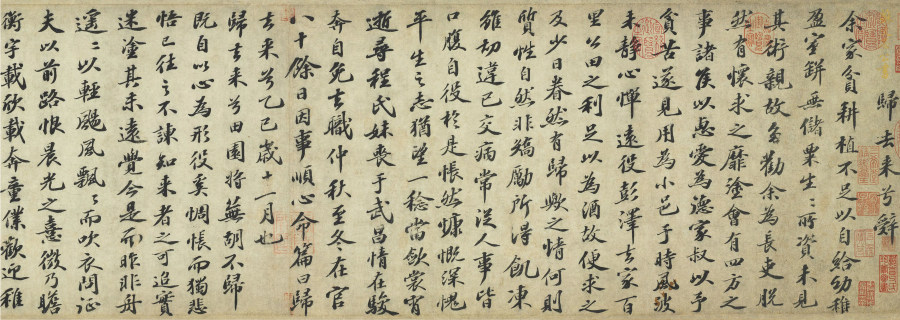 歸去來兮辭
余家貧耕植不足以自給幼稚
盈室缾無儲粟生〻所資未見
其術親故多勸余為長吏脫
然有懷求之靡塗會有四方之
事諸侯以惠愛為德家叔以予
貧苦遂見用為小邑于時風波
未靜心憚遠役彭澤去家百
里公田之利足以為酒故便求之
及少日眷然有歸歟之情何則
質性自然非矯勵所得飢凍
雖切違已交病常從人事皆
口腹自役於是悵然慷慨深愧
平生之志猶望一稔當斂裳宵
逝尋程氏妹喪于武昌情在駿
奔自免去職仲秋至冬在官
八十餘日因事順心命篇曰歸
去來兮乙巳歲十一月也
歸去來兮田園將蕪胡不歸
既自以心為形役奚惆悵而獨悲
悟已往之不諫知來者之可追實
迷塗其未遠覺今是而昨非舟
遙〻以輕颺風飄〻而吹衣問征
夫以前路恨晨光之憙微乃瞻
衡宇載欣載奔童僕歡迎稚